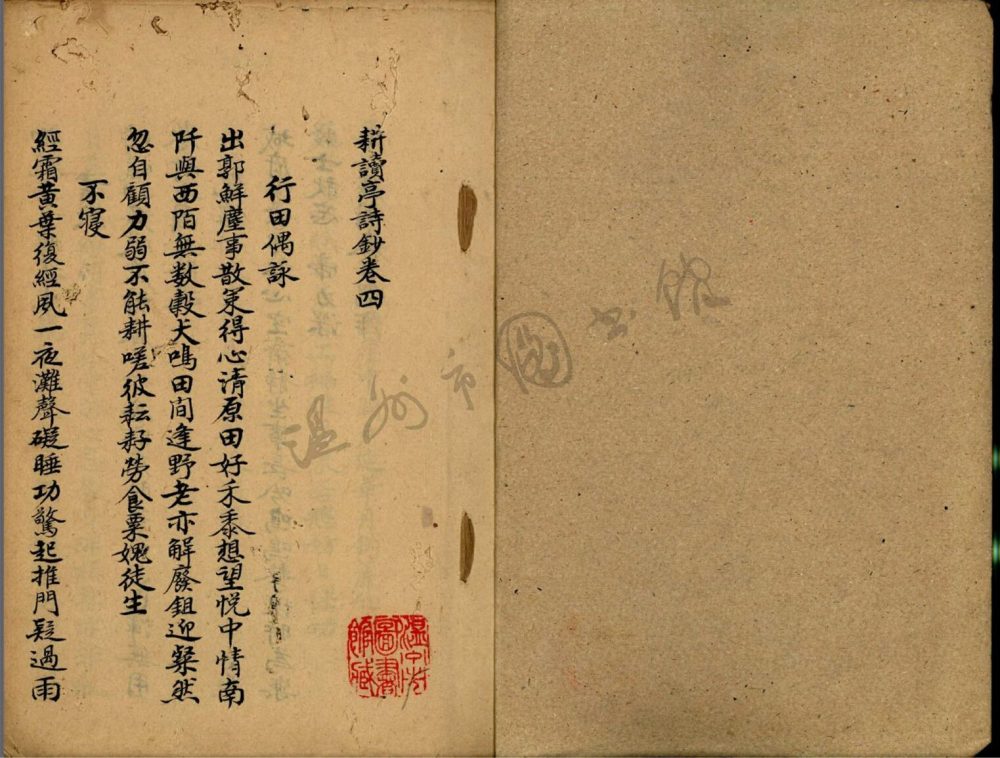 耕讀亭詩鈔卷四
行田偶詠
出郭鮮塵事散策得心清原田好禾黍想望悅中情南
阡與西陌無数轂犬鳴田間逢野老亦解廢鉏迎粲然
忽自顧力弱不能耕嗟彼耘耔勞食粟媿徒生
不寝
經霜黃葉復經夙一夜灘聲礙睡功驚起推門疑過雨
温州市圖書館
圖書館藏